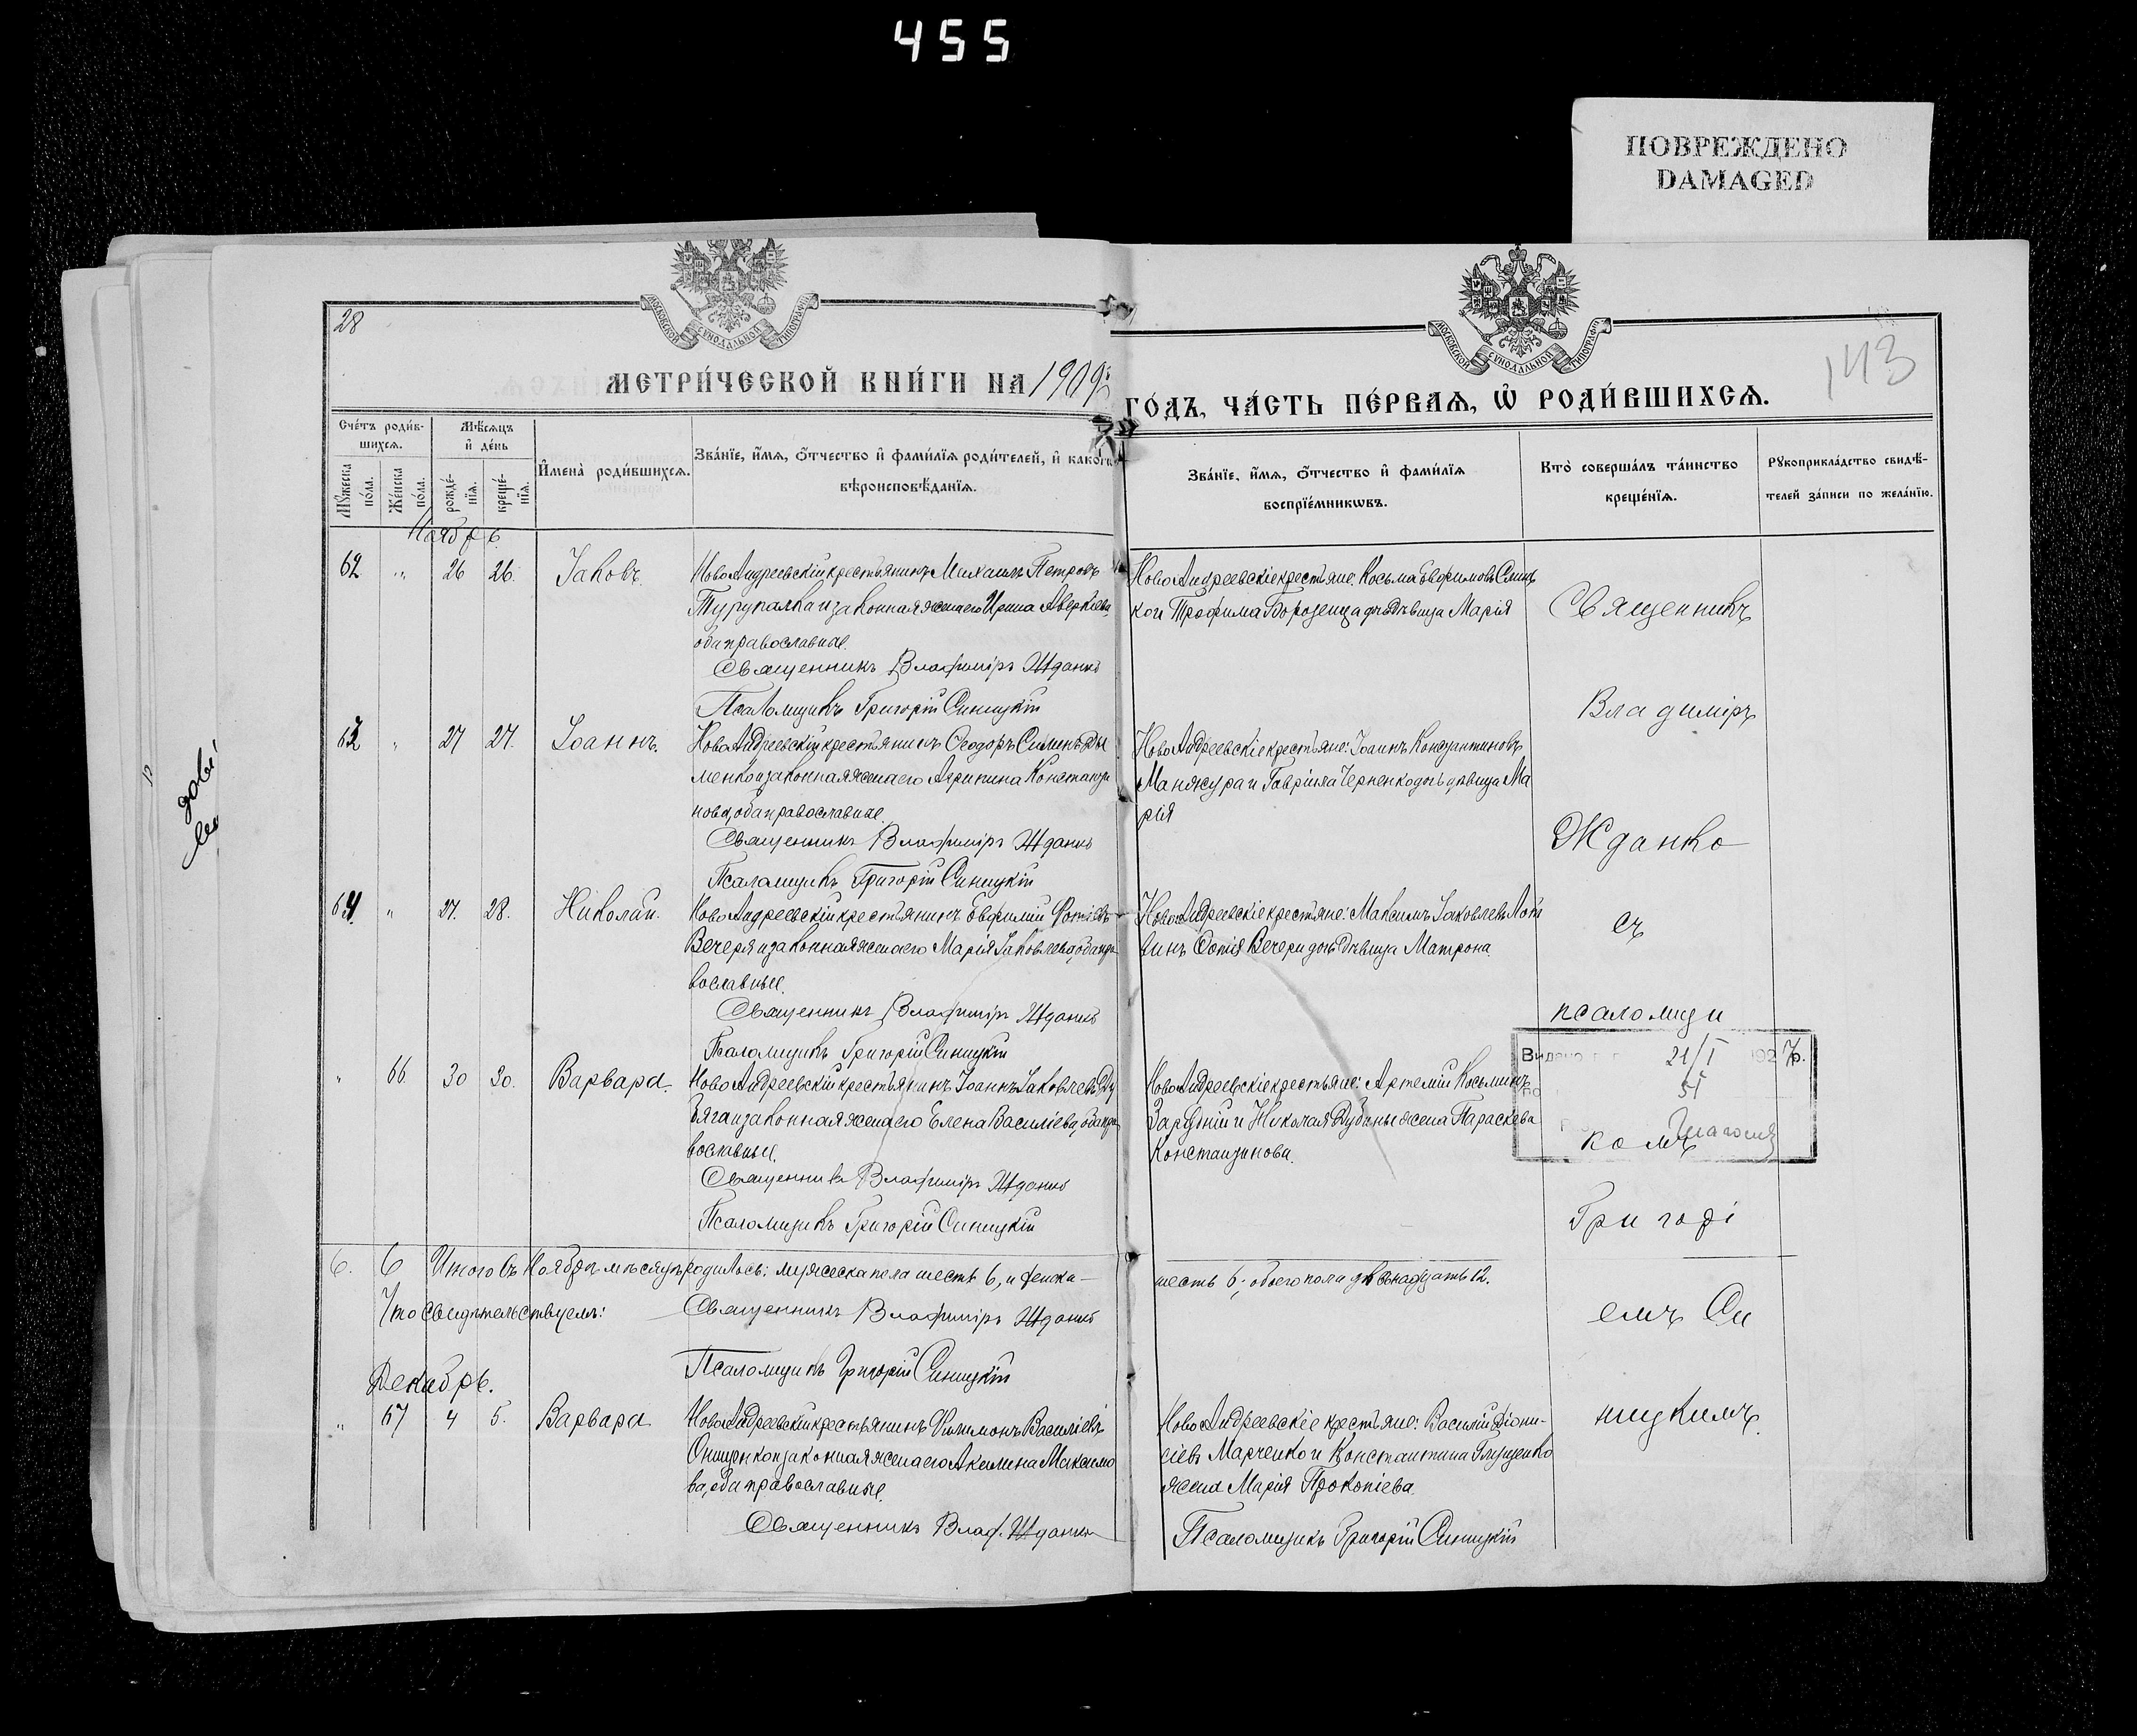 455
ПОВРЕЖДЕНО
DAMAGED
28
МОСКОВСКОЙ СѴНОДАЛЬНОЙ ТИПОГРАФІИ
МОСКОВСКОЙ СѴНОДАЛЬНОЙ ТИПОГРАФІИ
143
МЕТРИ́ЧЕСКОЙ КНИ́ГИ НА 1909
ГО́ДЪ, ЧА́СТЬ ПЕ́РВАѦ, Ѡ РОДИ́ВШИХСѦ.
Сче́тъ роди́в-
шихсѧ.
Мѣ́сѧцъ
и де́нь
Мꙋ́жеска по́ла.
Же́нска по́ла.
рожде́-нїѧ.
креще́-нїѧ.
И҆мена̀ роди́вшихсѧ.
Зва́нїе, и҆́мѧ, ѻ҆́тчество и҆ фами́лїѧ роди́телей, и҆ како́гѡ
вѣроисповѣ́данїѧ.
Зва́нїе, и҆́мѧ, ѻ҆́тчество и҆ фами́лїѧ
воспрїе́мникѡвъ.
Кто̀ соверша́лъ та́инство
креще́нїѧ.
Рꙋкоприкла́дство свидѣ́-
телей за́писи по жела́нїю.
Ноябрь
62 " 26 26. Іаковъ.
НовоАндреевскій крестьянинъ Михаилъ Петровъ
Турупалка и законная жена его Ирина Аверкіева,
оба православные.
Священникъ Владиміръ Жданко
Псаломщикъ Григорій Синицкій
НовоАндреевскіе крестьяне: Косьма Евфимовъ Слиц
ко и Трофима Бородеица дочь дѣвица Марія
63 " 27 27. Іоаннъ.
НовоАндреевскій крестьянинъ Ѳеодоръ Симинъ Ды
менко и законная жена его Агрипина Константи
нова, оба православные.
Священникъ Владиміръ Жданко
Псаломщикъ Григорій Синицкій
НовоАндреевскіе крестьяне: Іоаннъ Константиновъ
Манжура и Гавріила Черненко дочь дѣвица Ма
рія
64 " 27. 28. Николай.
НовоАндреевскій крестьянинъ Евфимій Фотіевъ
Вечеря и законная жена его Марія Іаковлева, оба пра
вославные.
Священникъ Владиміръ Жданко
Псаломщикъ Григорій Синицкій
НовоАндреевскіе крестьяне: Максимъ Іаковлевъ Лот
винъ Фотія Вечери дочь дѣвица Матрона.
" 66 30 30. Варвара.
НовоАндреевскій крестьянинъ Іоаннъ Іаковлевъ Ду
бяга и законная жена его Елена Василіева, оба пра
вославные.
Священникъ Владиміръ Жданко
Псаломщикъ Григорій Синицкій
НовоАндреевскіе крестьяне: Артемій Косьминъ
и Николая Дубины жена Параскева
Константинова.
6. 6 Итого въ Ноябрѣ мѣсяцѣ родилось: мужеска пола шесть 6, и женска —
шесть 6, обоего пола двѣнадцать 12.
Что свидѣтельствуемъ: Священникъ Владиміръ Жданко
Псаломщикъ Григорій Синицкій
Декабрь.
" 67 4 5. Варвара
НовоАндреевскій крестьянинъ Филимонъ Василіевъ
Онищенко и законная жена его Акилина Максимо
ва, оба православные.
Священникъ Влад. Жданко
НовоАндреевскіе крестьяне: Василій Діони-
сіевъ Марченко и Константина Глущенко
жена Марія Прокопіева.
Псаломщикъ Григорій Синицкій
Священникъ
Владиміръ
Жданко
съ
псаломщи
комъ
Григорі
емъ Си
ницкимъ.
Видано 21/I 1927р.
51